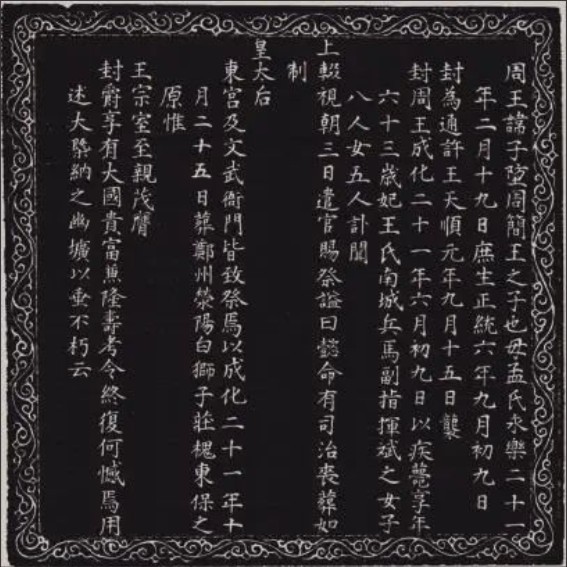 周王諱子埅周簡王之子也母孟氏永樂二十一
年二月十九日庶生正統六年九月初九日
封為通許王天順元年九月十五日襲
封周王成化二十一年六月初九日以疾薨享年
六十三歲妃王氏南城兵馬副指揮斌之女子
八人女五人訃聞
上輟視朝三日遣官賜祭謚曰懿命有司治喪葬如
制
皇太后
東宮及文武衙門皆致祭焉以成化二十一年十
月二十五日葬鄭州滎陽白獅子莊槐東保之
原惟
王宗室至親茂膺
封爵享有大國貴富兼隆壽考令終復何憾焉用
述大槩納之幽壙以垂不朽云